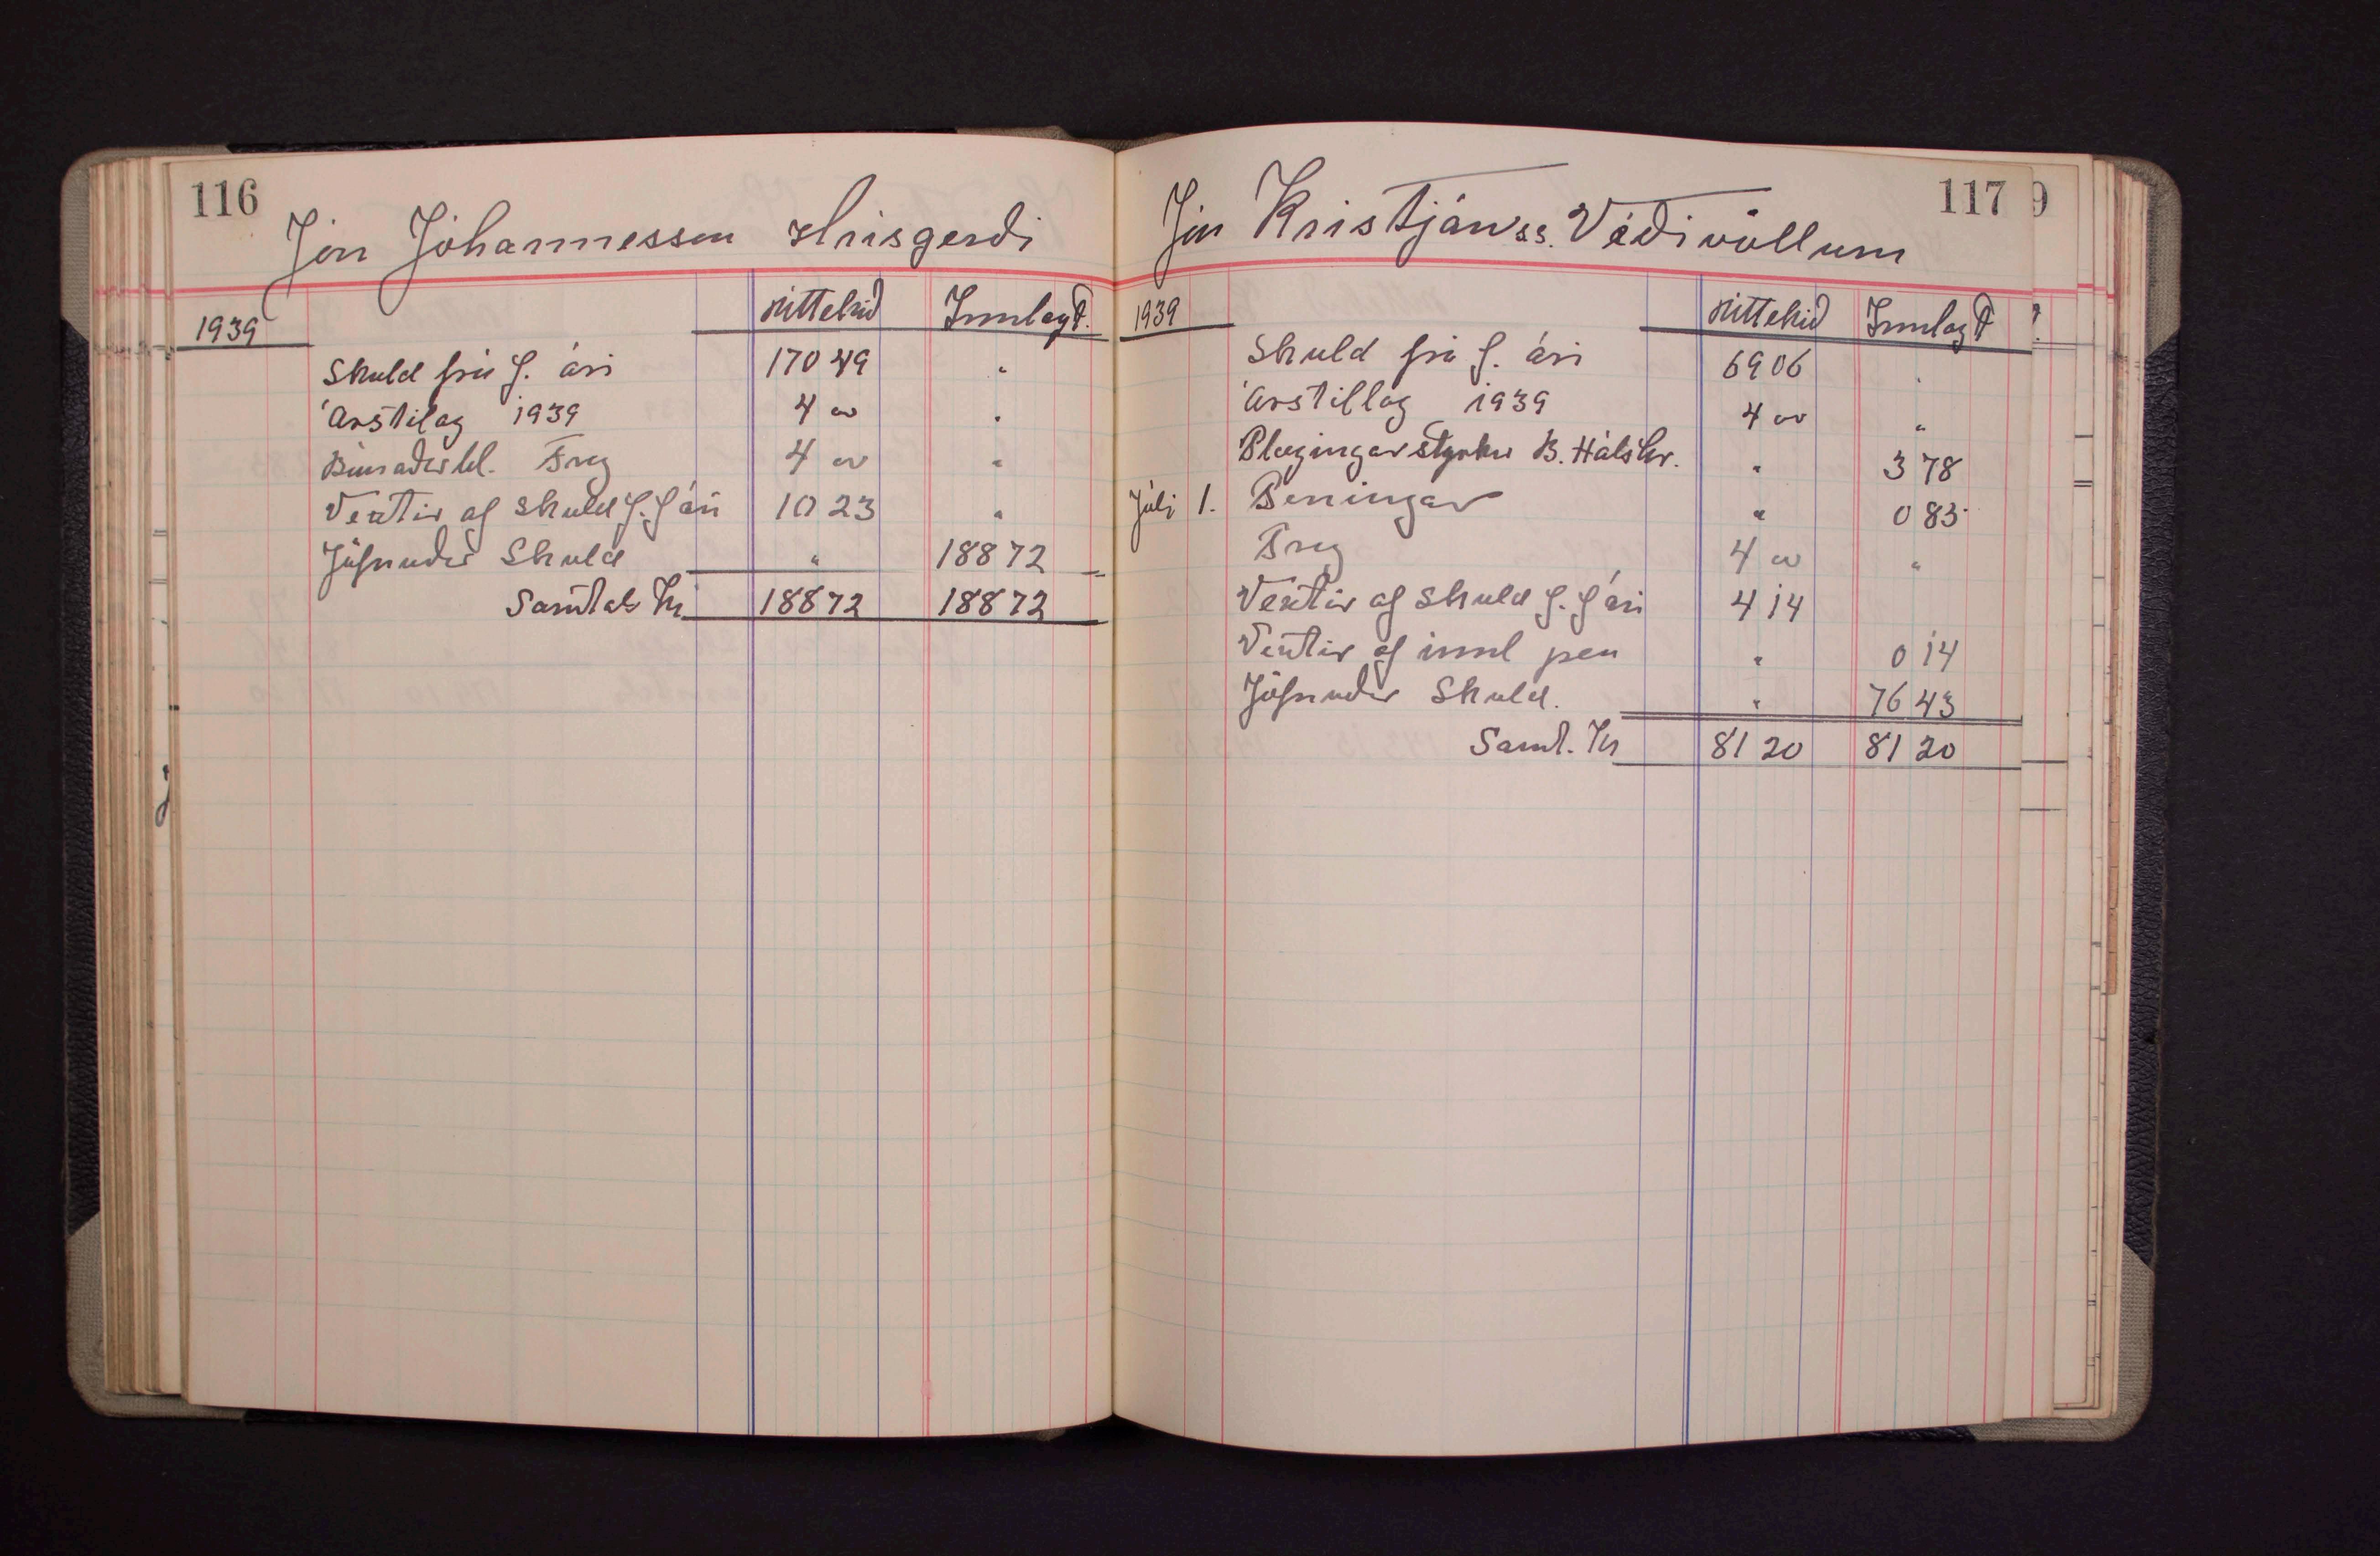 116
Jón Jóhannesson Hrísgerði
1939 Úttekið Innlagt.
Skuld frá f. ári 170 49 "
Árstilag 1939 4 00 "
Búnaðarbl. Frey 4 00 "
Vextir af skuld f. f ári 10 23 "
Jöfnuður Skuld " 188 72
Samtals Kr 188 72 188 72
117 9
Jón Kristjánss. Véðivöllum
1939 Úttekið Innlagt
Skuld frá f. ári 69 06 "
Árstillag 1939 4 00 "
Plægingarstyrkur B. Hálshr. " 3 78
Júlí 1. Peningar " 0 83
Frey 4 00 "
Vextir af skuld f. f ári 4 14
Vextir af innl pen " 0 14
Jöfnuður Skuld. " 76 43
Samt. Kr 81 20 81 20